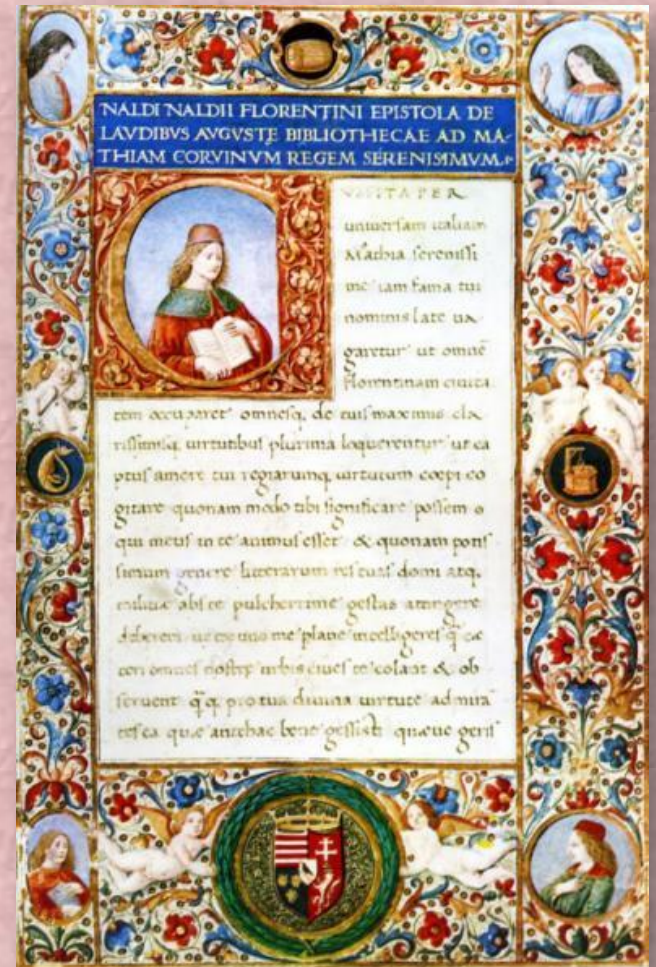 NALDI NALDII FLORENTINI EPISTOLA DE
LAVDIBVS AVGVSTE BIBLIOTHECAE AD MA-
THIAM CORVINVM REGEM SERENISIMVM
VSITA PER
universam italiam
Mathia serenissi
me iam fama tui
nominis late va
garetur ut omnē
florentinam civita
tem occuparet omnesq. de tuis maximis cla
rissimisq. virtutibus plurima loquerentur ut ca
ptus amore tui regiarumq. virtutum coepi co
gitare quonam modo tibi significare possem
qui meus in te animus esset & quonam potis
simum genere litterarum res tuas domi atq.
abs te pulcherrime gestas attingere
me plane intelligeres q̄ cæ
teri omnes nostrę urbis cives te colant & ob
servent q̄q. pro tua divina virtute admira
ea quæ antehac bene gessisti quæve geris